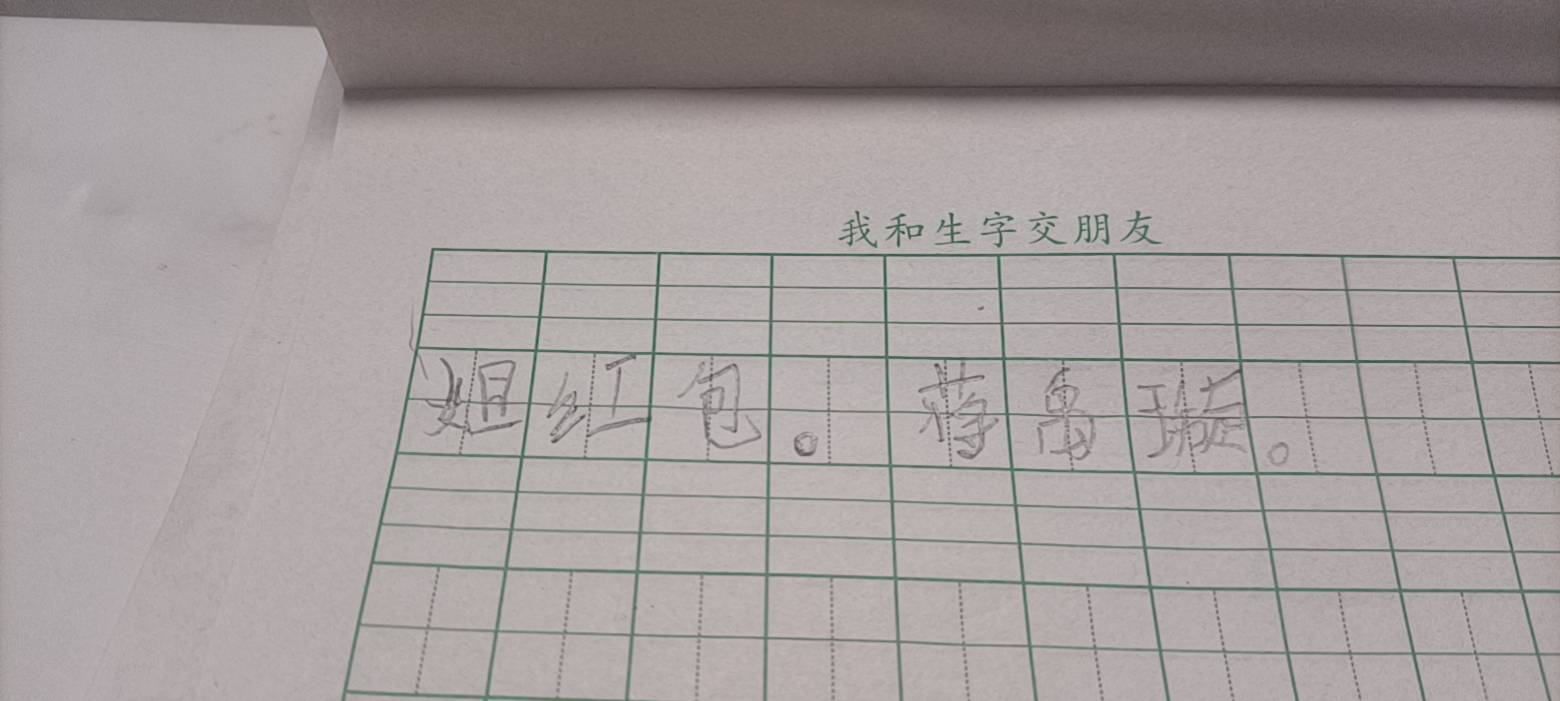 我和生字交朋友
姐红包。蒋禹璇。